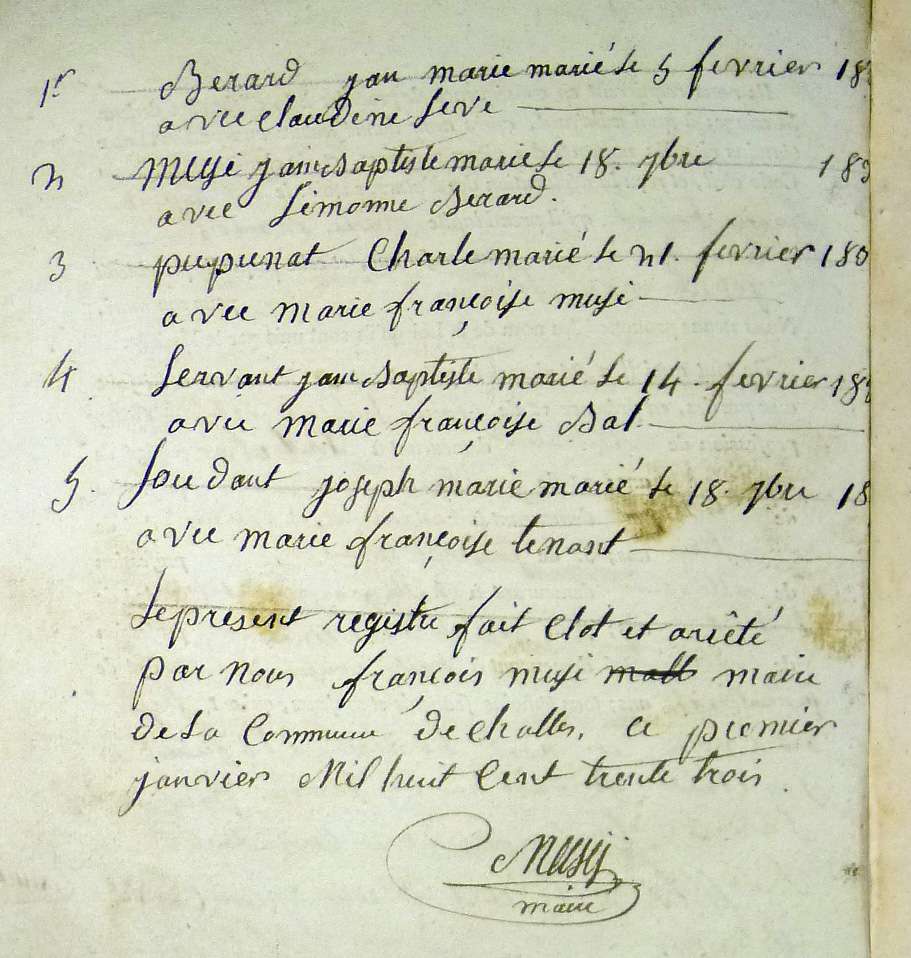 1er Berard jan marie marié le 5 fevrier 18
avec Claudine Seve
2 Musi jain Baptiste marie le 18. 7bre 183
avec Simonne Berard.
3 pupunat Charle marié le 21. fevrier 180
avec marie françoise musi
4 Servant jam Baptiste marié le 14. fevrier 18
avec marie françoise Bal
5. Soudant joseph marie marié le 18. 7bre 18
avec marie françoise tenant
Le present registre fait Clot et arièté
par nous françois musi maire
de La Commune de Challes, ce premier
janvier Mil huit Cent trente trois.
Musy
maire